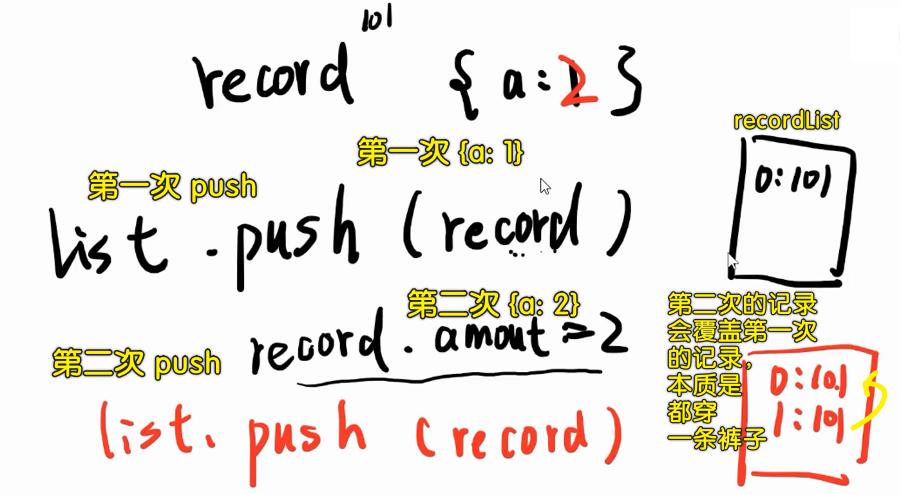 101
record { a : 2 }
recordList
第一次 {a: 1}
第一次 push
0:101
list . push ( record )
第二次 {a: 2}
第二次的记录
会覆盖第一次
的记录,
本质是
都穿
一条裤子
record . amout = 2
第二次 push
0:101
1:101
list. push (record)